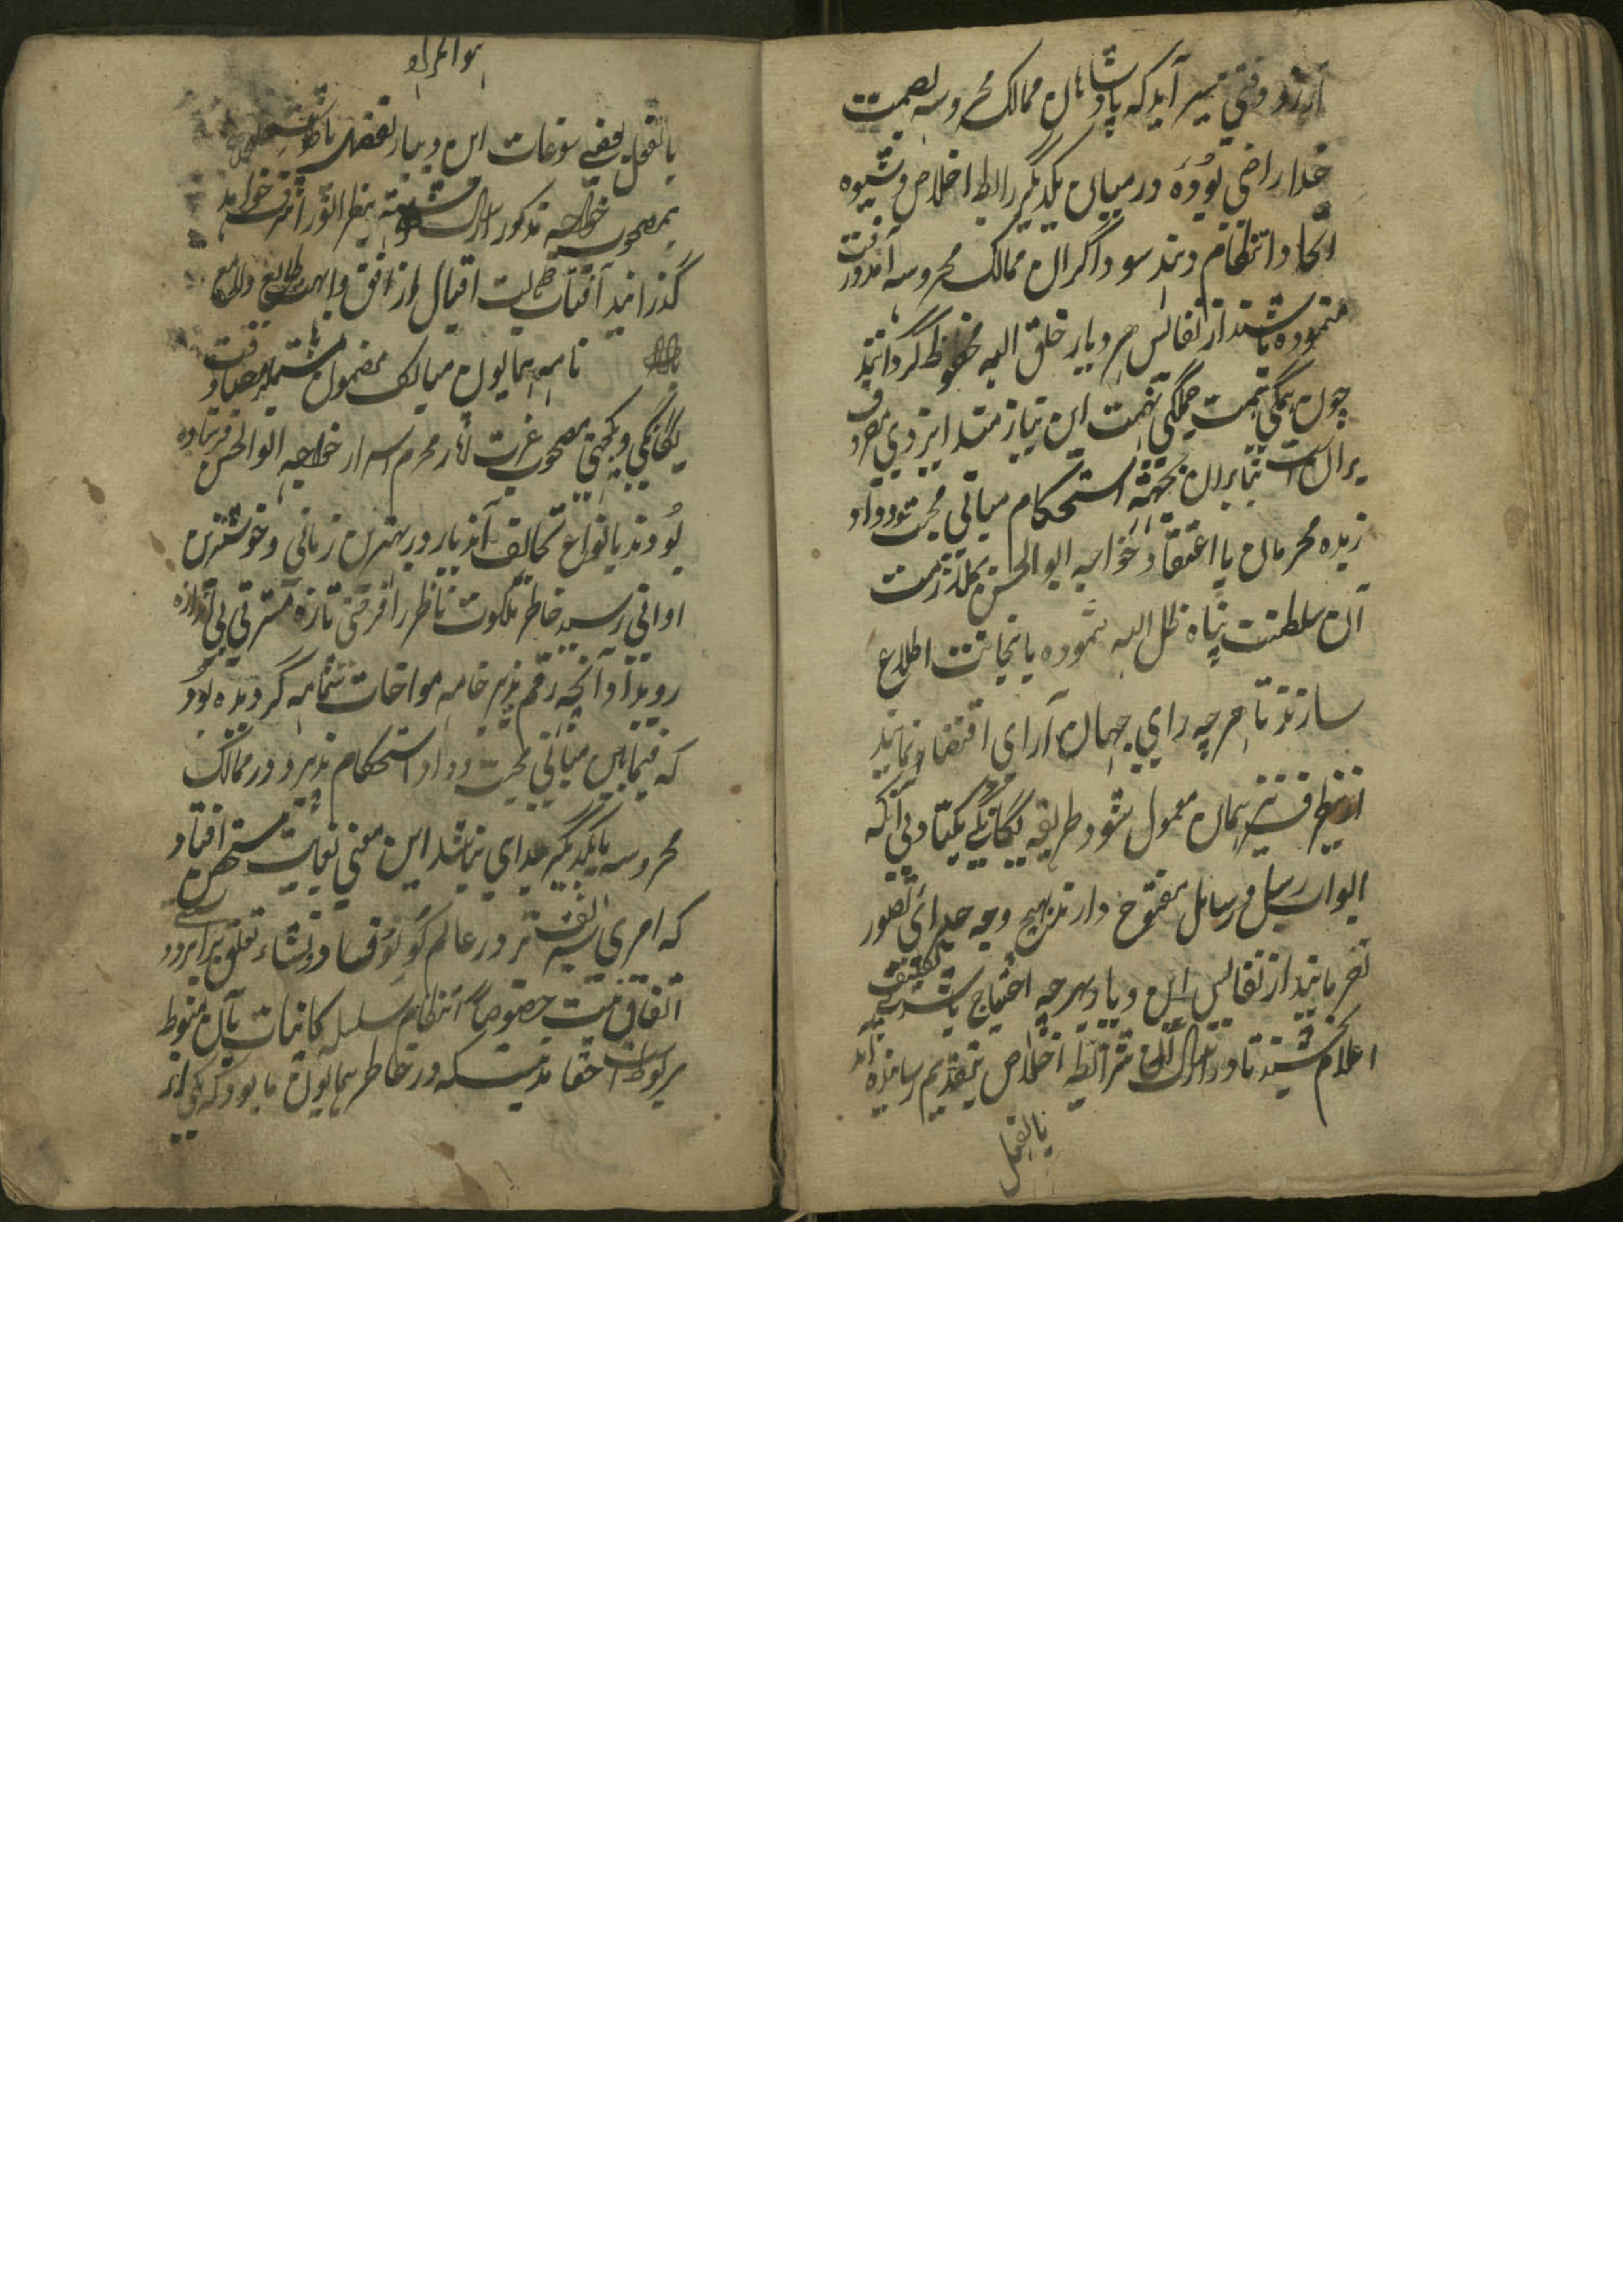 آرزو وقتی میسر آید که پادشاهان ممالک محروسه بصمیت
خدا راضی بوده در میان یکدیگر رابطه اخلاص و شیوه
اتحاد و انتظام دهند سوداگران ممالک محروسه آمد و رفت
نموده باشند از نفائس هر دیار خلق الله محظوظ گردانند
چون همگی همت جملگی نهمت این نیازمند ایزدی مصروف
بر آن است بنابران بجهته استحکام مبانی محبت و وداد
زبده محرمان با اعتقاد خواجه ابوالحسن بملازمت
آن سلطنت پناه ظل الله نموده باینجانب اطلاع
سازند تا هر چه رای جهان آرای اقتضا نماید
ازینطرف نیز همان معمول شود طریقه یگانگی یکتادلی آنکه
ابواب رسل و رسایل مفتوح دارند بهیچ وجه جدائی تصور
نفرمایند از نفایس این دیار بهرچه احتیاج باشد بی تکلیف
اعلام بخشند تا در ارسال آن شرائط اخلاص بتقدیم رسانیده آید
بالفعل
هو المراد
بالفعل بعضی سوغات این دیار بتفصیل
بمصحوب خواجه مذکور ارسال بنظر انور اشرف خواهد
گذرانید آفتاب اقبال از افق طالع و لامع باد
نامه همایون مبارک مضمون مشتملبر
یگانگی و یکجهتی مصحوب عزت آثار محرم اسرار خواجه ابوالحسن فرستاده
بودند بانواع تحائف آندیار در بهترین زمانی و خوشترین
اوانی رسید خاطر ملکوت ناظر را فرحتی تازه مسرتی بی اندازه
رویداد آنچه رقم پذیر خامه مواخات شمامه گردیده بود
که فیمابین مبانی محبت و وداد استحکام پذیرد در ممالک
محروسه با یکدیگر جدای نباشد این معنی بغایت مستحسن افتاد
که امری شریف تر در عالم کون و فساد و نشاء تعلق
اتفاق نیست خصوصاً انتظام سلسله کائنات بآن منوط
مربوط است حقا مدتیست که در خاطر همایون ما بود که